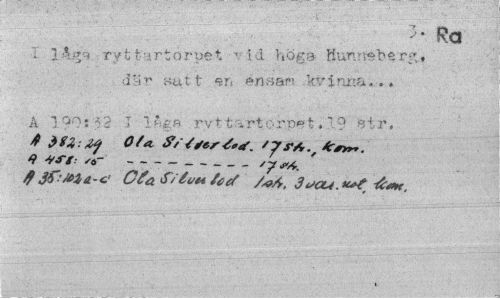 3. Ra
I låga ryttartorpet vid höga Hunneberg,
där satt en ensam kvinna...
A 190:32 I låga ryttartorpet.19 str.
A 382:29 Ola Silverlod. 17 str., kom.
A 458:15 - - - - - - - - - 17 str.
A 35:102a-c Ola Silverlod 1 str. 3 var. not, kom.